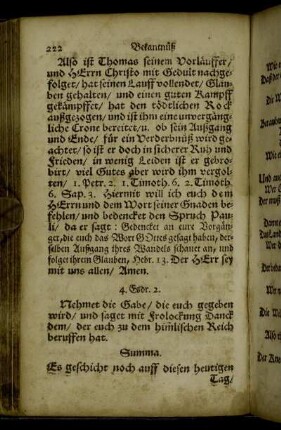 222 Bekantnüß
Also ist Thomas seinem Vorläuffer/
und HErrn Christo mit Gedult nachge-
folget/ hat seinen Lauff vollendet/ Glau-
ben gehalten/ und einen guten Kampff
gekämpffet/ hat den tödtlichen Rock
außgezogen/ und ist ihm eine unvergäng-
liche Crone bereitet/ u. ob sein Außgang
und Ende/ für ein Verderbnüß wird ge-
achtet/ so ist er doch in sicherer Ruh und
Frieden/ in wenig Leiden ist er gepro-
birt/ viel Gutes aber wird ihm vergol-
ten/ 1. Petr. 2. 1. Timoth. 6. 2. Timoth.
6. Sap. 3. Hiermit will ich euch dem
HErrn und dem Wort seiner Gnaden be-
fehlen/ und bedencket den Spruch Pau-
li/ da er sagt: Gedencket an eure Vorgän-
ger, die euch das Wort GOttes gesagt haben, der-
selben Außgang ihres Wandels schauet an, und
folget ihrem Glauben, Hebr. 13. Der HErr sey
mit uns allen/ Amen.
4. Esdr. 2.
Nehmet die Gabe/ die euch gegeben
wird/ und saget mit Frolockung Danck
dem/ der euch zu dem him̃lischen Reich
beruffen hat.
Summa.
Es geschicht noch auff diesen heutigen
Tag/